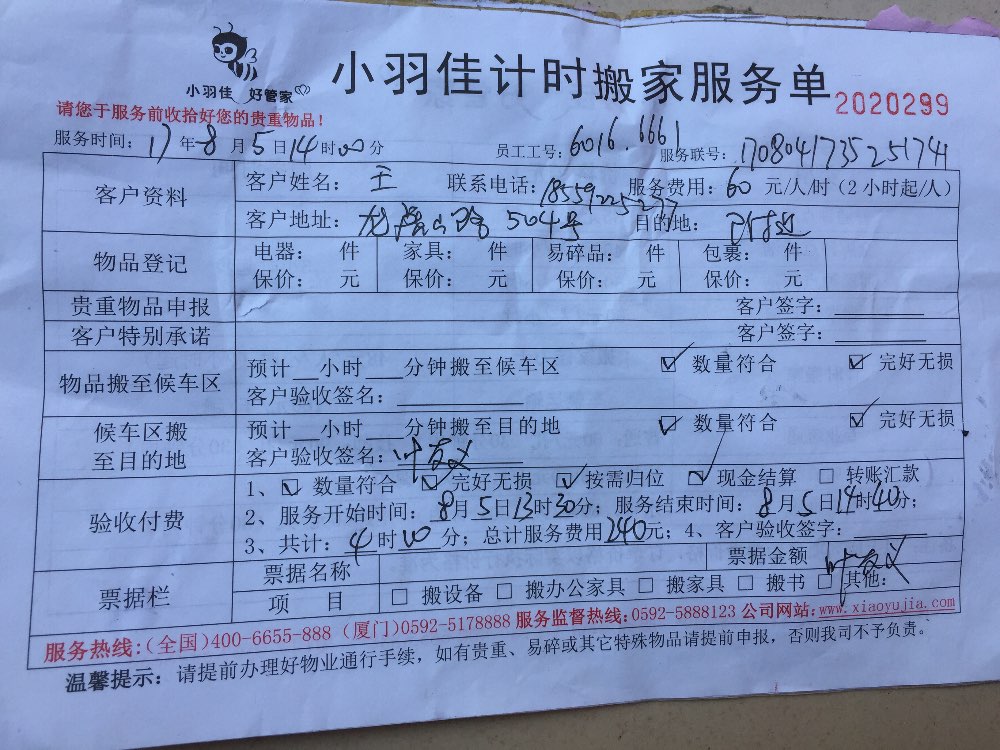 小羽佳 好管家
小羽佳计时搬家服务单
2020299
请您于服务前收拾好您的贵重物品！
服务时间：17年8月5日14时00分 员工工号：6016.6661 服务联号：1708041735251741
客户资料
客户姓名：王 联系电话：18559225277 服务费用：60元/人/时（2小时起/人）
客户地址：504号 目的地：附近
物品登记
电器： 件 家具： 件 易碎品： 件 包裹： 件
保价： 元 保价： 元 保价： 元 保价： 元
贵重物品申报 客户签字：
客户特别承诺 客户签字：
物品搬至候车区
预计__小时___分钟搬至候车区 ☑ 数量符合 ☑ 完好无损
客户验收签名：
候车区搬至目的地
预计__小时___分钟搬至目的地 ☑ 数量符合 ☑ 完好无损
客户验收签名：叶友义
验收付费
1、☑ 数量符合 ☑ 完好无损 ☑ 按需归位 ☑ 现金结算 □ 转账汇款
2、服务开始时间：8月5日13时30分；服务结束时间：8月5日14时40分；
3、共计：4时00分；总计服务费用240元；4、客户验收签字：叶友义
票据栏
票据名称 票据金额
项 目 □ 搬设备 □ 搬办公家具 □ 搬家具 □ 搬书 □ 其他：
服务热线：（全国）400-6655-888（厦门）0592-5178888 服务监督热线：0592-5888123 公司网站：www.xiaoyujia.com
温馨提示：请提前办理好物业通行手续，如有贵重、易碎或其它特殊物品请提前申报，否则我司不予负责。